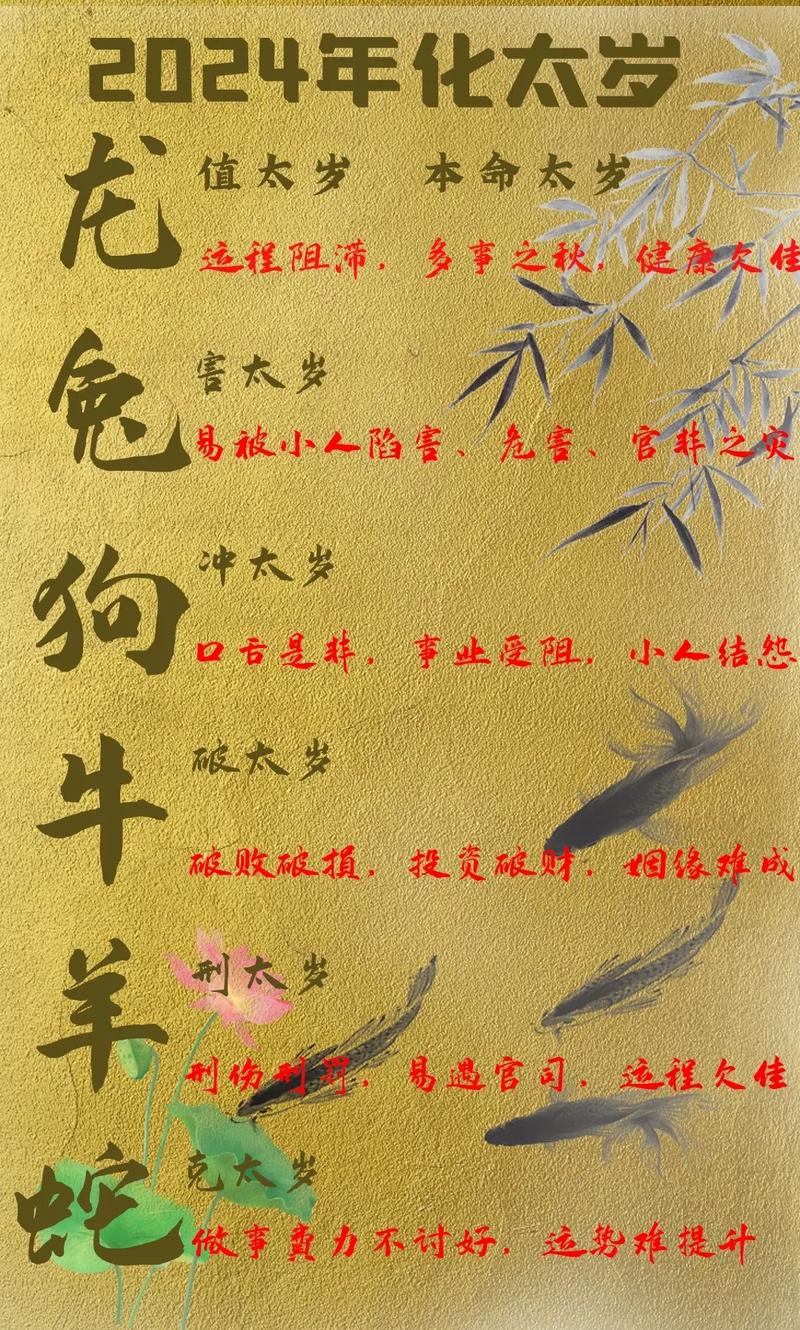 2024年化太岁
龙
值太岁 本命太岁
运程阻滞，多事之秋，健康欠佳
兔
害太岁
易被小人陷害、危害、官非之灾
狗
冲太岁
口舌是非，事业受阻，小人结怨
牛
破太岁
破败破损，投资破财，姻缘难成
羊
刑太岁
刑伤刑罚，易遇官司，运程欠佳
蛇
克太岁
做事费力不讨好，运势难提升